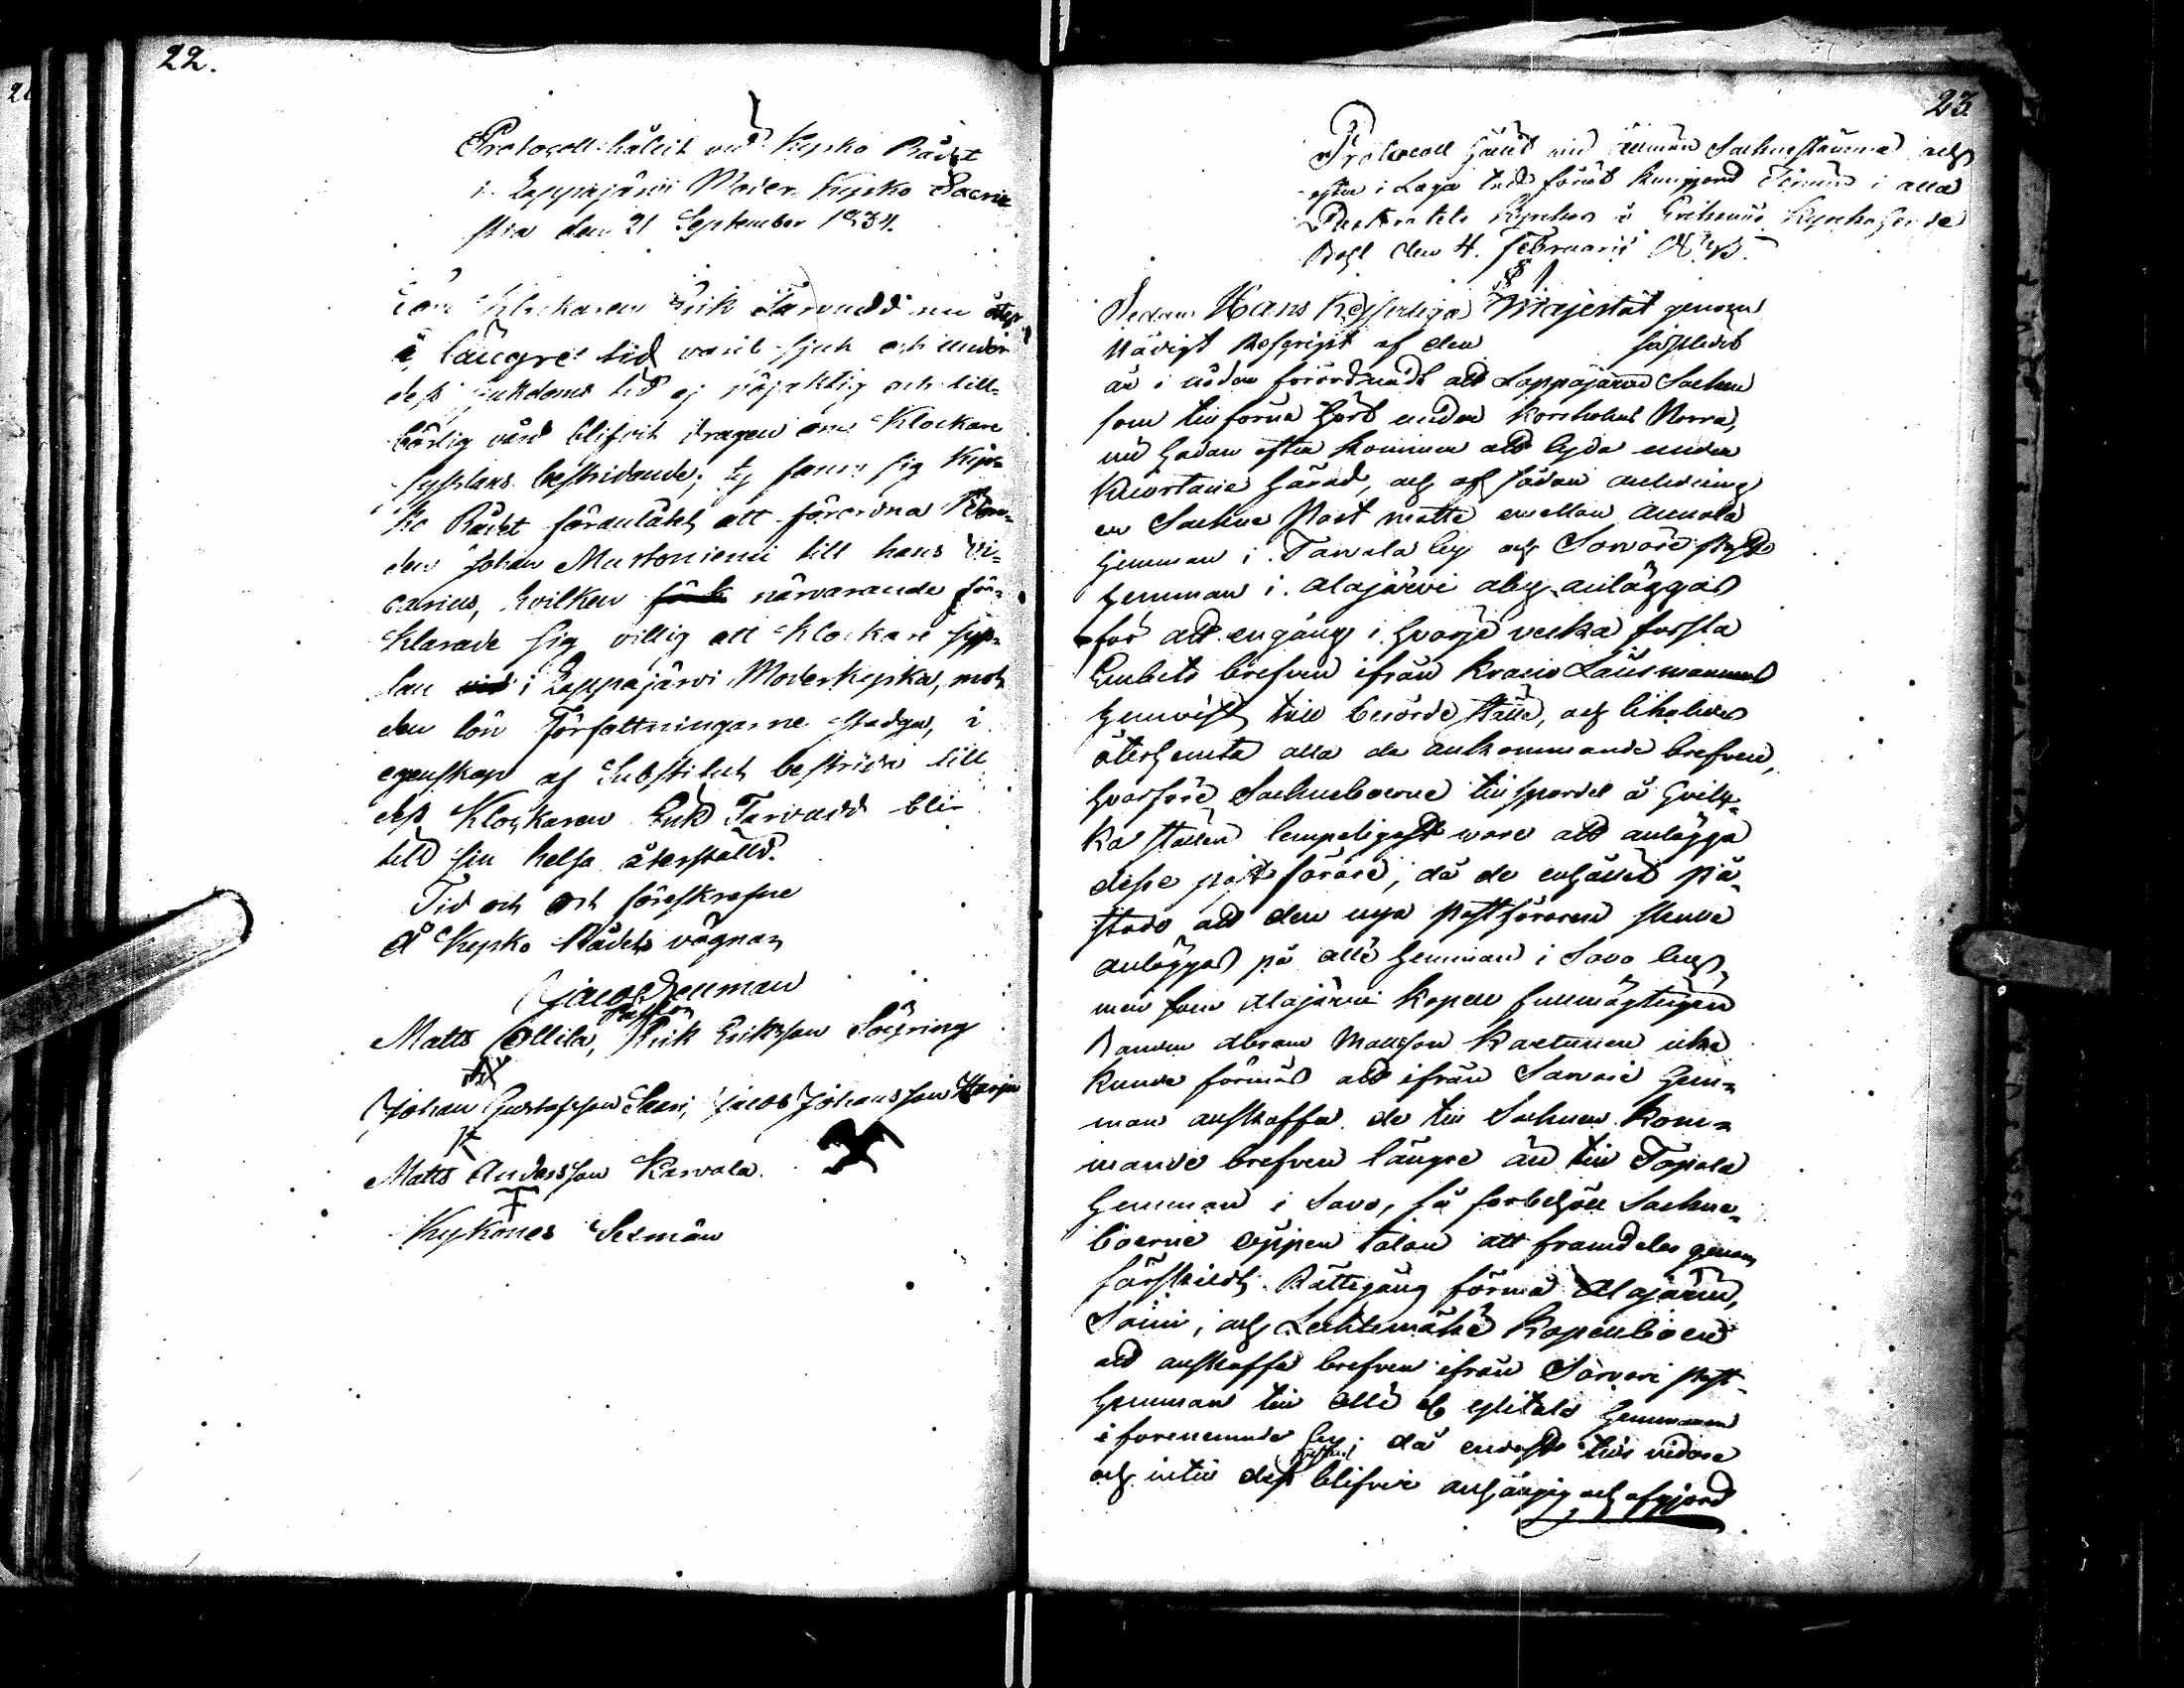 22.
Protocoll hållit vid Kyrko Rådet
i Lappajärvi Moder Kyrko Sacri
stia den 21 September 1834.
Som Klockaren Erik Tarvudd nu
i längre tid varit sjuk och under
dess sjukdoms tid ej nöjaktig och till-
börlig vård blifvit dragen om Klockare
sysslans bestridande; ty fann sig Kyr-
ko Rådet föranlåtet att förordna
den Johan Mustoniemi till hans Vi-
carius, hvilken närvarande för-
klarade sig villig att Klockare syss-
lan i Lappajärvi Moderkyrka, mot
den lön Författningarne stadga, i
egenskap af Substitut bestrida till
dess Klockaren Erik Tarvudd blir
till sin helsa återställd.
Tid och Ort föreskrefne
På Kyrko Rådets vägnar
Jacob Denman
Pastor
Matts Ollila, Erik Eriksson Söyring
Johan Gustafsson Saari, Jacob Johansson Harju
Matts Andersson Karvala.
Kyrkones Sexmän
23.
Protocoll hållit vid allmän Sockne stämma och
efter i Laga tid förut kungjord Termin i alla
Pastoratets Kyrkor å Evikunis Kyrkoherde
Bohl den 4. Februarii
§ 1
Sedan Hans Kejserliga Majestät genom
Nådigt Rescript af den sistledet
år i nåder förordnadt att Lappajärvi Sockn
som tillförne hört under Korsholms Norra,
vid hädan efter kommer att lyda under
Kuortane härad, och af sådan anledning
en Sockne Post måtte emellan Annala
hemman i Tarvala by och Sarvare post
hemman i Alajärvi aby anläggas
för att engång i hvarje vecka forsla
Embets brefven ifrån Krono Länsmannens
hemvist till berörde ställe, och likaledes
återhemta alla de ankommande brefven,
hvarföre Socknboerne tillspordes å hvil-
ka ställen lämpeligast vore att anlägga
desse post förare, då de enhällit på-
stodo att den nya postföraren skulle
anläggas på Alli hemman i Savo by,
men som Alajärvi Kapell fullmägtigen
Bonden Abram Mattsson Kaetunen icke
kunde förmås att ifrån Sarvare hem-
man anskaffa de till Socknen kom-
mande brefven längre än till Topala
hemman i Savo, så förbehöll Sockne-
boerne öppen talan att framdeles genom
särskildt Rättegång förmå Alajärvi,
Soini, och Lehtimäki Kapellboerne
att anskaffa brefven ifrån Sarvari post-
hemman till Alli el. Ylitalo hemmanen
i förenemnde by; då endast tills vidare
och intill dess blifvit anhängig och afgjord